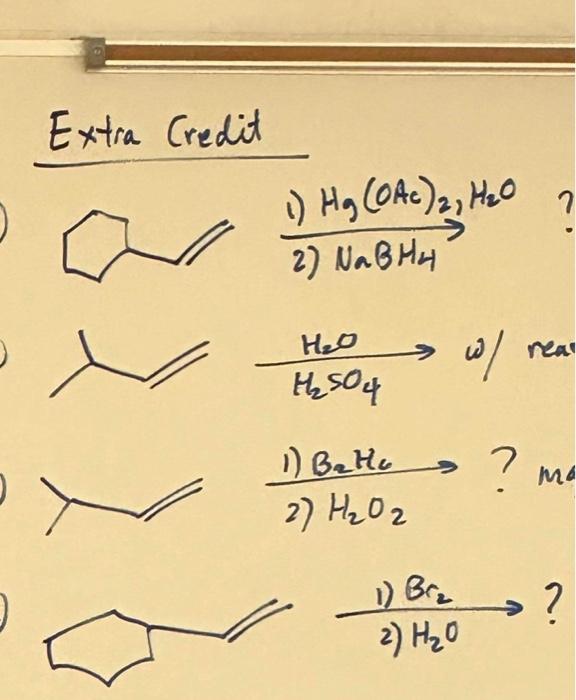 Extra Credit
1) Hg(OAc)2, H2O ?
2) NaBH4
H2O w/
H2SO4
1) B2H6 ?
2) H2O2
1) Br2 ?
2) H2O